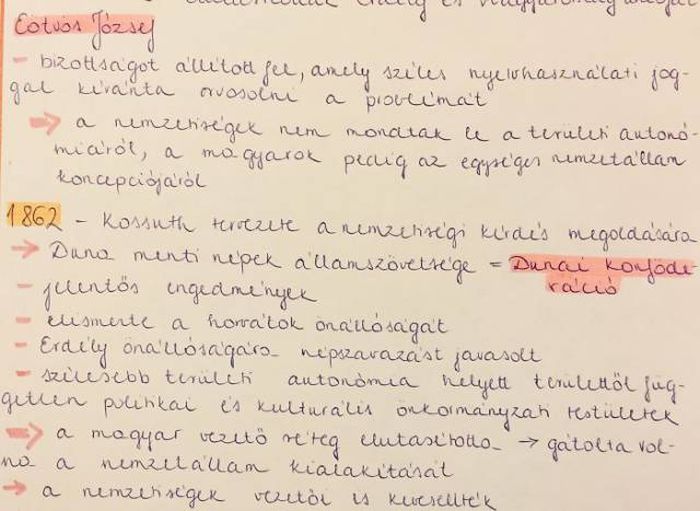 Erdély és Magyarország
Eötvös József
- bizottságot állított fel, amely széles nyelvhasználati jog-
gal kívánta orvosolni a problémát
→ a nemzetiségek nem mondtak le a területi autonó-
miáról, a magyarok pedig az egységes nemzetállam
koncepciójáról
1862 - Kossuth tervezete a nemzetiségi kérdés megoldására
→ Duna menti népek államszövetsége = Dunai konföde-
ráció
- jelentős engedmények
- elismerte a horvátok önállóságát
- Erdély önállóságára népszavazást javasolt
- szélesebb területi autonómia helyett területtől füg-
getlen politikai és kulturális önkormányzati testületek
→ a magyar vezető réteg elutasította → gátolta vol-
na a nemzetállam kialakítását
→ a nemzetiségek vezetői is kevesellték